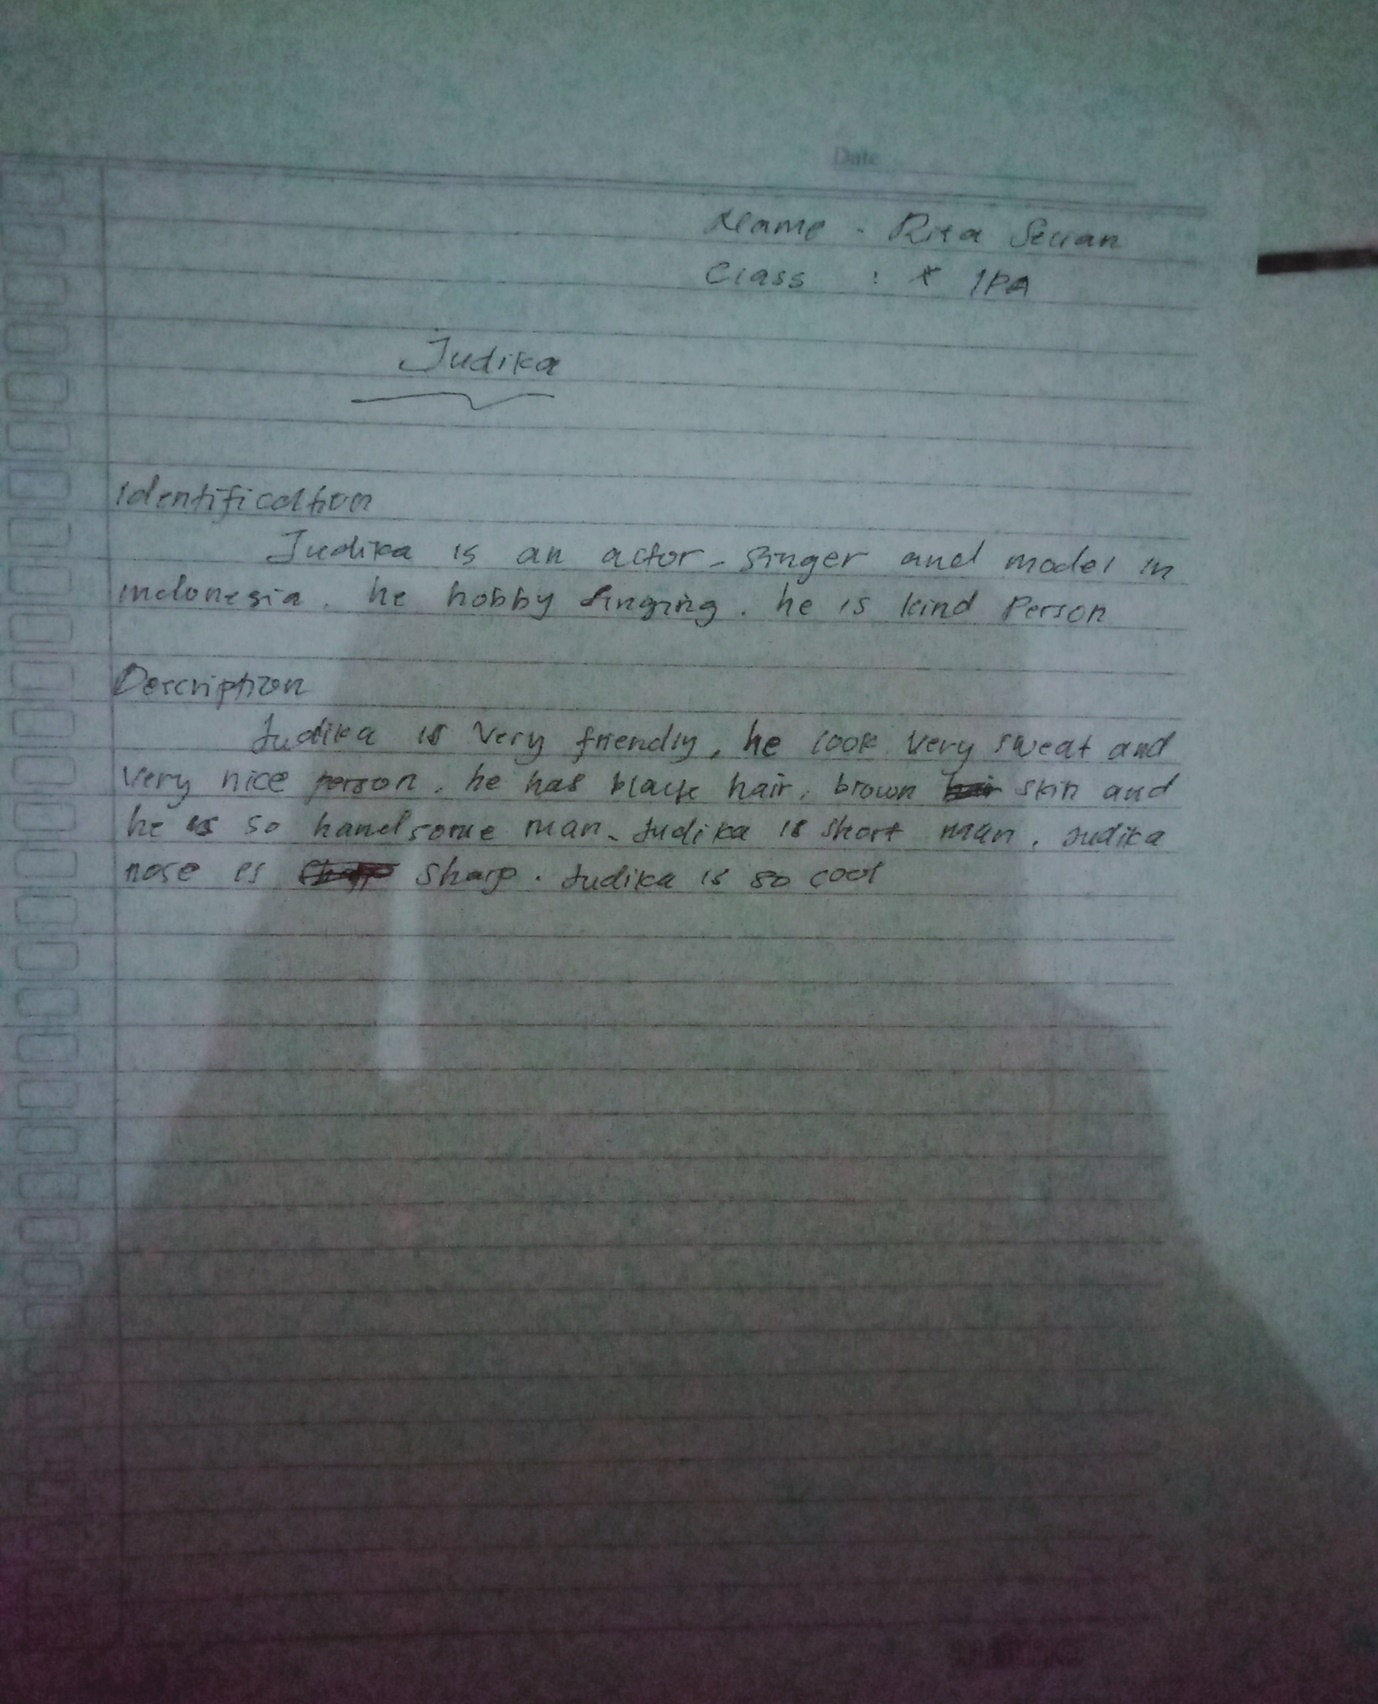 Date
Name : Rita
Class : X IPA
Judika
Identification
Judika is an actor - singer and model in
indonesia. he hobby singing. he is kind Person
Description
Judika is very friendly, he look very sweat and
very nice person. he has black hair, brown skin and
he is so handsome man. Judika is short man. Judika
nose is sharp. Judika is so cool